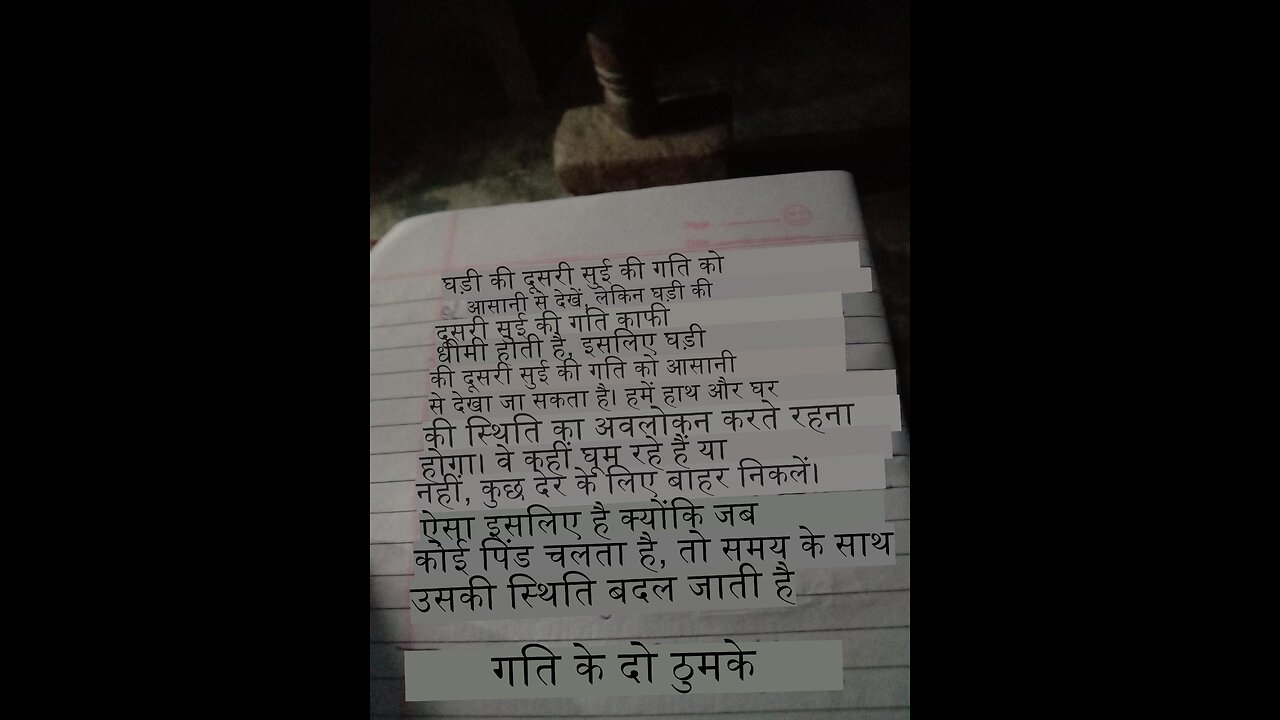 घड़ी की दूसरी सुई की गति को
आसानी से देखें, लेकिन घड़ी की
दूसरी सुई की गति काफी
धीमी होती है, इसलिए घड़ी
की दूसरी सुई की गति को आसानी
से देखा जा सकता है। हमें हाथ और घर
की स्थिति का अवलोकन करते रहना
होगा। वे कहीं घूम रहे हैं या
नहीं, कुछ देर के लिए बाहर निकलें।
ऐसा इसलिए है क्योंकि जब
कोई पिंड चलता है, तो समय के साथ
उसकी स्थिति बदल जाती है
गति के दो ठुमके